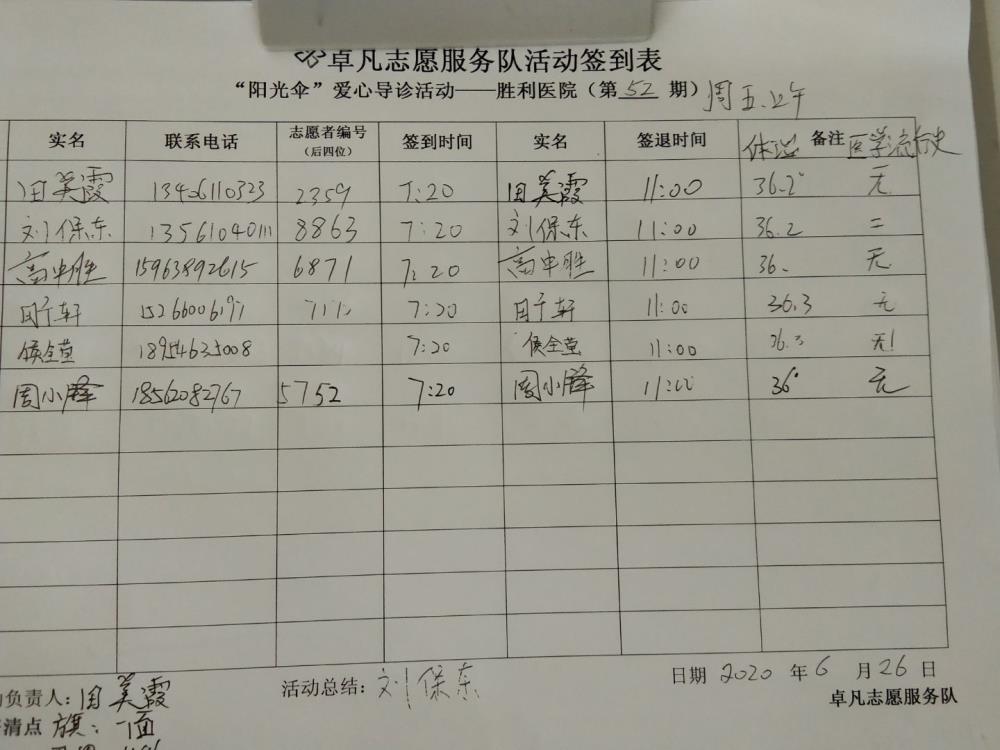 卓凡志愿服务队活动签到表
“阳光伞”爱心导诊活动——胜利医院（第 52 期）周五.上午
实名 联系电话 志愿者编号（后四位） 签到时间 实名 签退时间 体温 备注 医学流行史
田美霞 13406110323 2359 7:20 田美霞 11:00 36.2° 无
刘保东 13561040111 8863 7:20 刘保东 11:00 36.2 二
高中胜 15963892615 6871 7:20 高中胜 11:00 36. 无
7:20 11:00 36.3 无
侯全堂 18954635008 7:20 侯全堂 11:00 无!
周小泽 18562082767 5752 7:20 周小泽 11:00 36° 无
负责人：田美霞 活动总结：刘保东 日期 2020 年 6 月 26 日
清点 旗：一面 卓凡志愿服务队